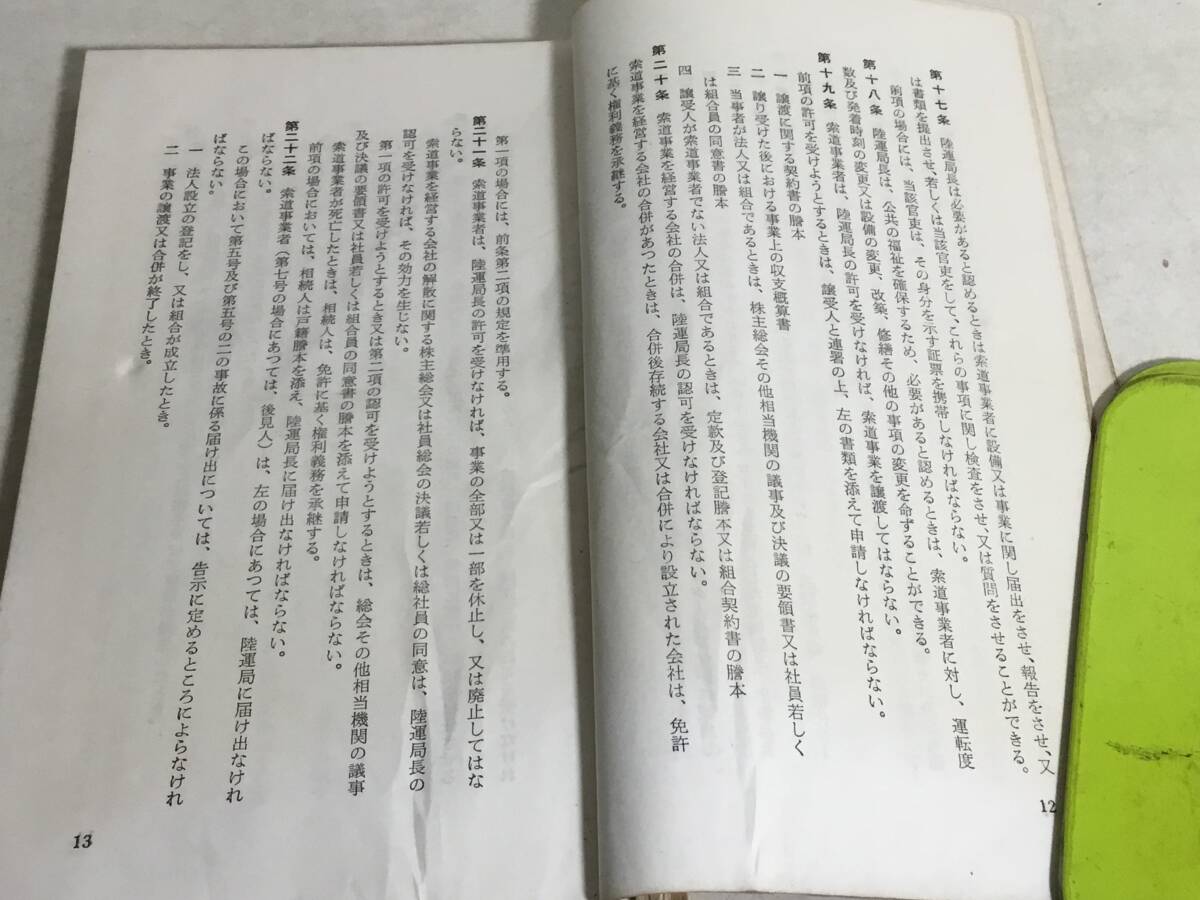 第十七条　陸運局長は必要があると認めるときは索道事業者に設備又は事業に関し届出をさせ、報告をさせ、又
は書類を提出させ、若しくは当該官吏をして、これらの事項に関し検査をさせ、又は質問をさせることができる。
前項の場合には、当該官吏は、その身分を示す証票を携帯しなければならない。
第十八条　陸運局長は、公共の福祉を確保するため、必要があると認めるときは、索道事業者に対し、運転度
数及び発着時刻の変更又は設備の変更、改築、修繕その他の事項の変更を命ずることができる。
第十九条　索道事業者は、陸運局長の許可を受けなければ、索道事業を譲渡してはならない。
前項の許可を受けようとするときは、譲受人と連署の上、左の書類を添えて申請しなければならない。
一　譲渡に関する契約書の謄本
二　譲り受けた後における事業上の収支概算書
三　当事者が法人又は組合であるときは、株主総会その他相当機関の議事及び決議の要領書又は社員若しく
は組合員の同意書の謄本
四　譲受人が索道事業者でない法人又は組合であるときは、定款及び登記謄本又は組合契約書の謄本
第二十条　索道事業を経営する会社の合併は、陸運局長の認可を受けなければならない。
索道事業を経営する会社の合併があつたときは、合併後存続する会社又は合併により設立された会社は、免許
に基く権利義務を承継する。
12
第一項の場合には、前条第二項の規定を準用する。
第二十一条　索道事業者は、陸運局長の許可を受けなければ、事業の全部又は一部を休止し、又は廃止してはな
らない。
索道事業を経営する会社の解散に関する株主総会又は社員総会の決議若しくは総社員の同意は、陸運局長の
認可を受けなければ、その効力を生じない。
第一項の許可を受けようとするとき又は第二項の認可を受けようとするときは、総会その他相当機関の議事
及び決議の要領書又は社員若しくは組合員の同意書の謄本を添えて申請しなければならない。
索道事業者が死亡したときは、相続人は、免許に基く権利義務を承継する。
前項の場合においては、相続人は戸籍謄本を添え、陸運局長に届け出なければならない。
第二十二条　索道事業者（第七号の場合にあつては、後見人）は、左の場合にあつては、陸運局に届け出なけれ
ばならない。
この場合において第五号及び第五号の二の事故に係る届け出については、告示に定めるところによらなけれ
ばならない。
一　法人設立の登記をし、又は組合が成立したとき。
二　事業の譲渡又は合併が終了したとき。
13